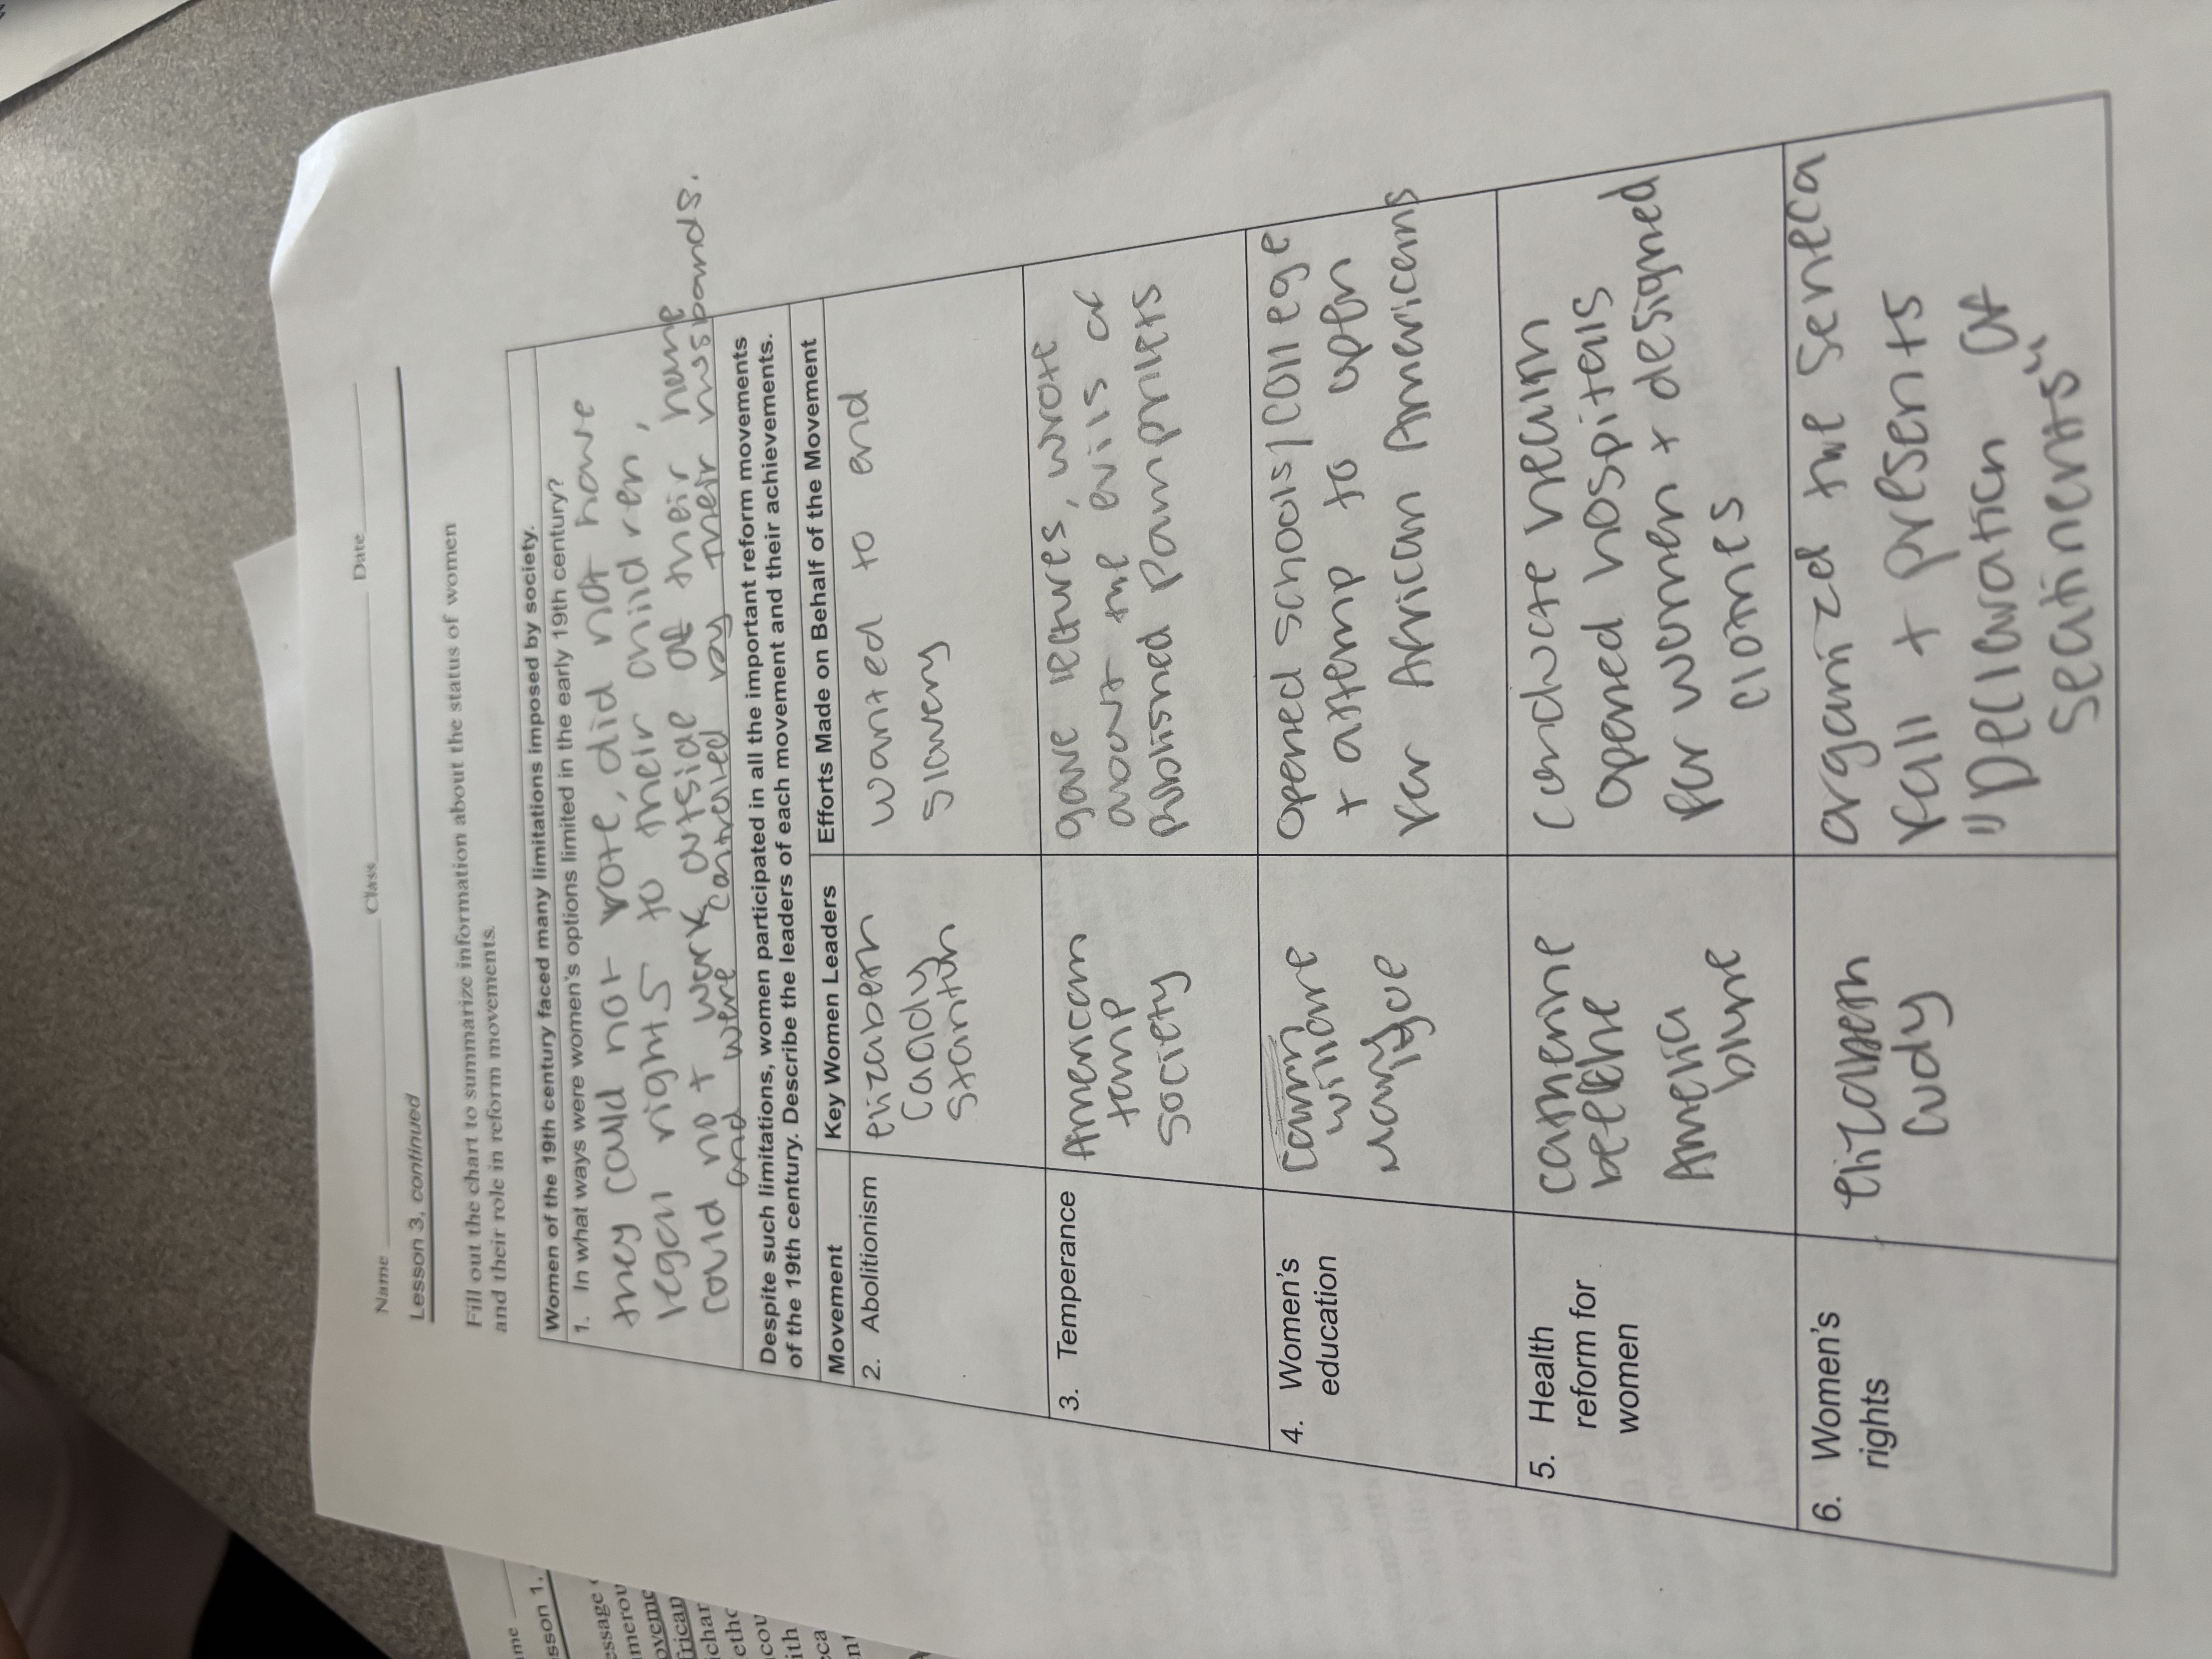 Name Class Date
Lesson 3, continued
Fill out the chart to summarize information about the status of women
and their role in reform movements.
Women of the 19th century faced many limitations imposed by society.
1. In what ways were women's options limited in the early 19th century?
they could not vote, did not have
legal rights to their children,
could not work outside of their home
and were controlled by their husbands.
Despite such limitations, women participated in all the important reform movements
of the 19th century. Describe the leaders of each movement and their achievements.
Movement Key Women Leaders Efforts Made on Behalf of the Movement
2. Abolitionism
elizabeth
Cady
Stanton
wanted to end
slavery
3. Temperance
American
temp
society
gave lectures, wrote
about the evils of
published pamphlets
4. Women's
education
willard
opened schools/college
+ attemp to open
for African Americans
5. Health
reform for
women
Amelia
conducte health
opened hospitals
for women + designed
clothes
6. Women's
rights
Elizabeth
cady
organized the seneca
fall + presents
"Declaration of
Seatiments"
me
sson 1,
essage
merou
oveme
frican
char
etho
cou
ith
cca